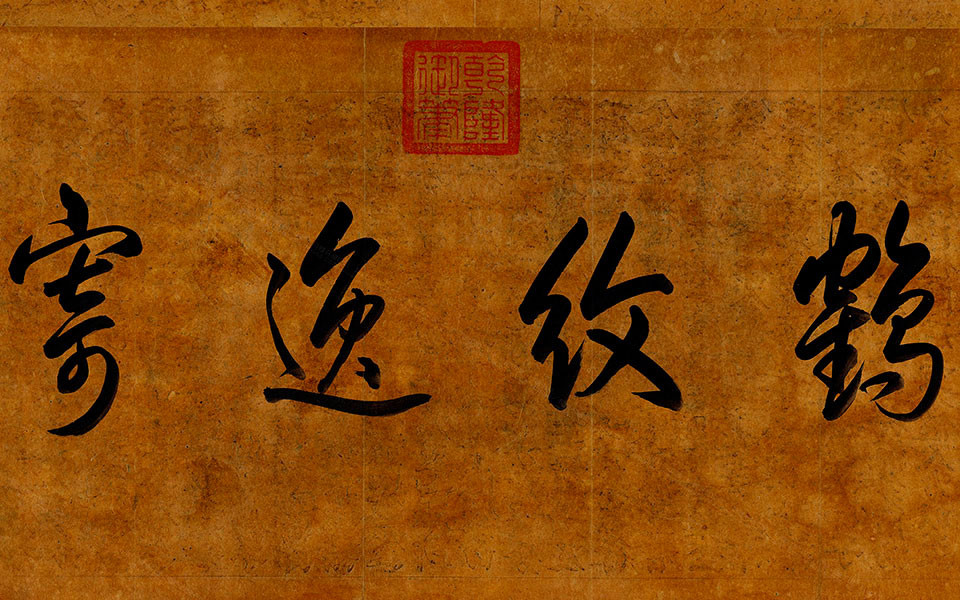 乾隆御筆
鶴紋逸寄